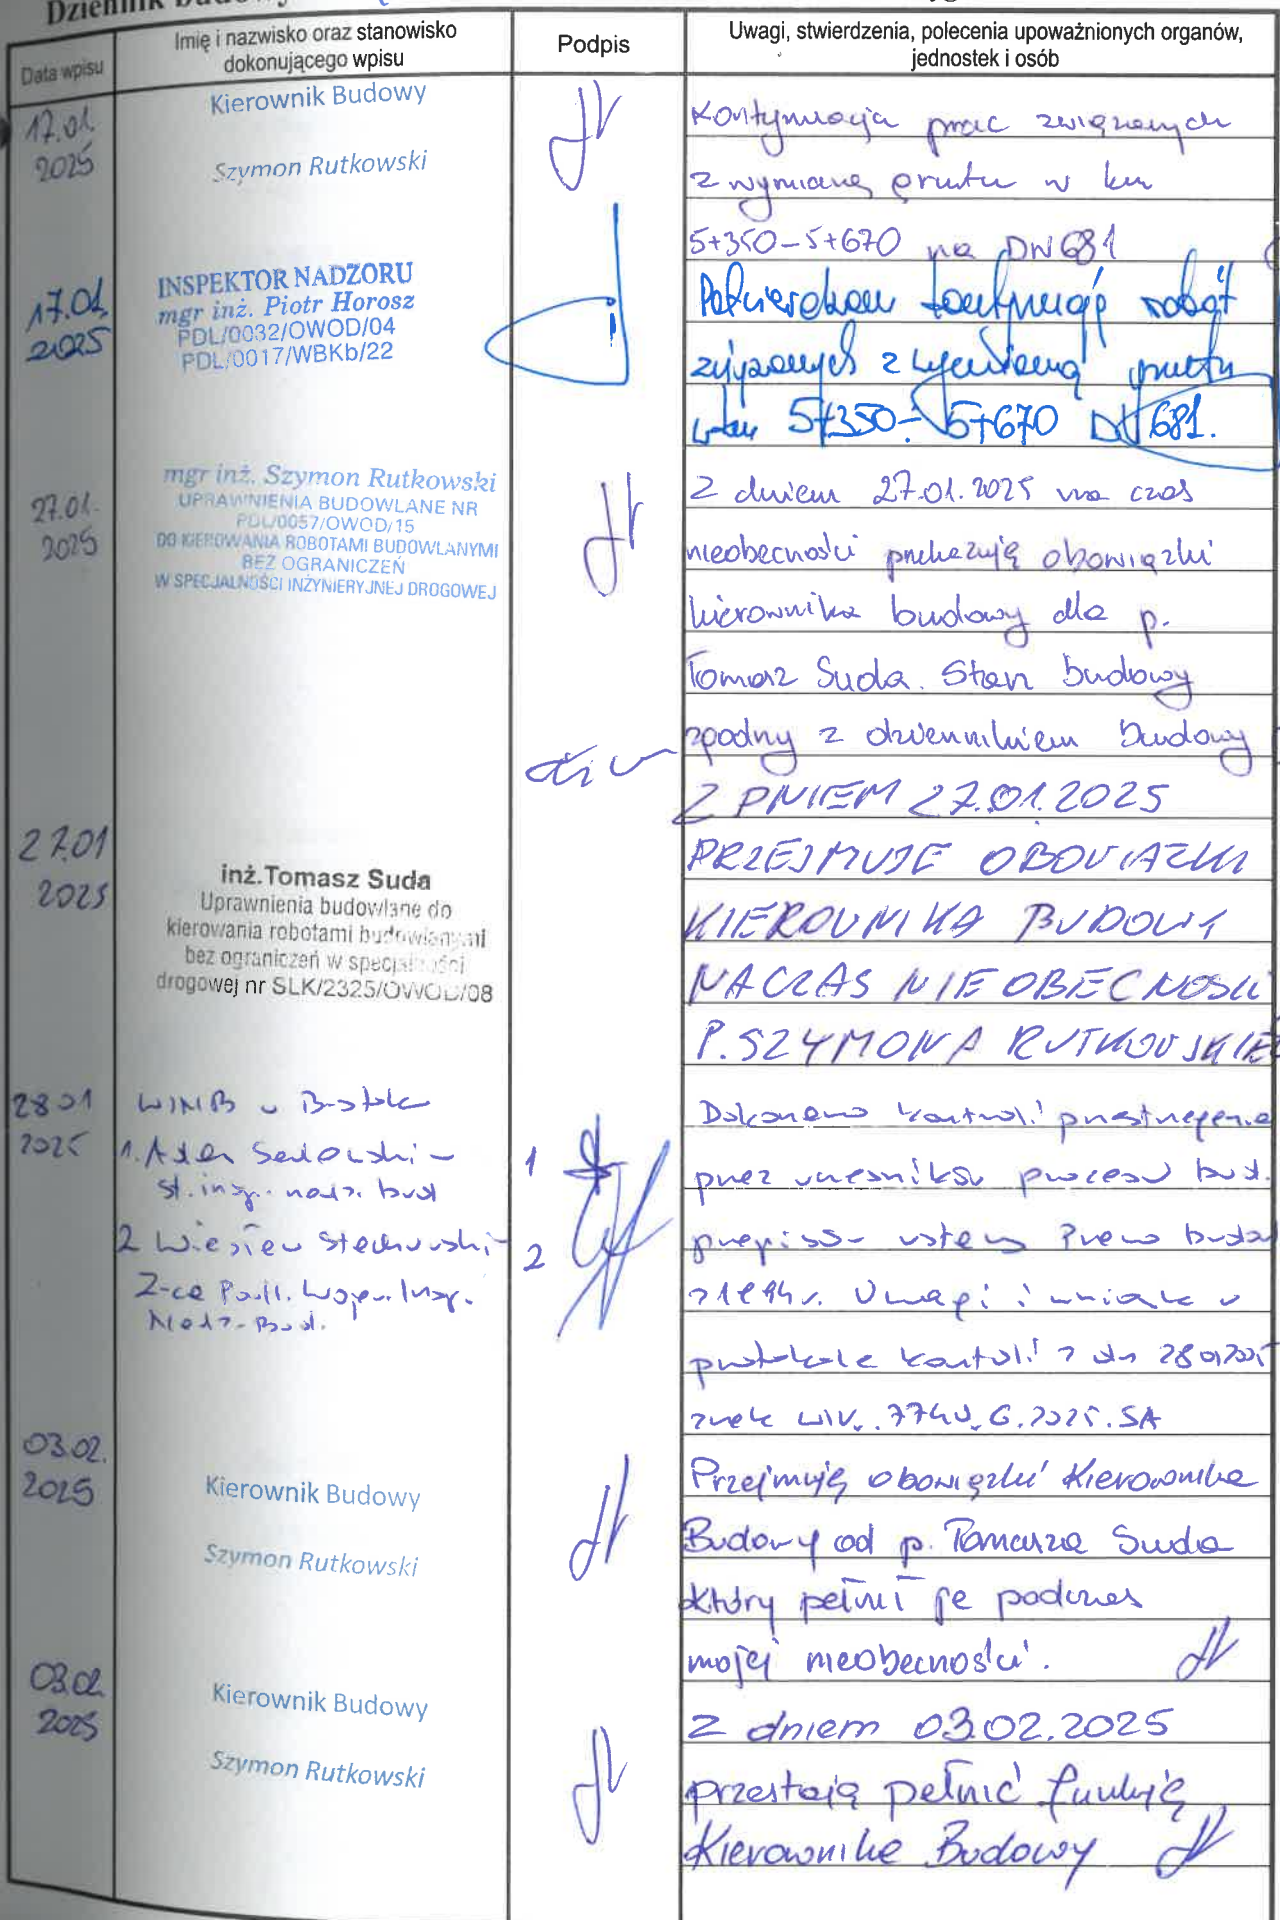 Dziennik budowy
Data wpisu
Imię i nazwisko oraz stanowisko
dokonującego wpisu
Podpis
Uwagi, stwierdzenia, polecenia upoważnionych organów,
jednostek i osób
17.01
2025
Kierownik Budowy
Szymon Rutkowski
Kontynuacja prac związanych
z wymianą gruntu w km
5+350-5+670 na DW681
17.01.
2025
INSPEKTOR NADZORU
mgr inż. Piotr Horosz
PDL/0032/OWOD/04
PDL/0017/WBKb/22
Potwierdzam kontynuację robót
związanych z wymianą gruntu
w km 5+350-5+670 DW681.
27.01.
2025
mgr inż. Szymon Rutkowski
UPRAWNIENIA BUDOWLANE NR
PDL/0057/OWOD/15
DO KIEROWANIA ROBOTAMI BUDOWLANYMI
BEZ OGRANICZEŃ
W SPECJALNOŚCI INŻYNIERYJNEJ DROGOWEJ
Z dniem 27.01.2025 na czas
nieobecności przekazuję obowiązki
kierownika budowy dla p.
Tomasz Suda. Stan budowy
zgodny z dziennikiem budowy
27.01
2025
inż.Tomasz Suda
Uprawnienia budowlane do
kierowania robotami budowlanymi
bez ograniczeń w specjalności
drogowej nr SLK/2325/OWOD/08
Z DNIEM 27.01.2025
PRZEJMUJE OBOWIAZKI
KIEROWNIKA BUDOWY
NA CZAS NIEOBECNOSCI
P. SZYMONA RUTKOWSKIE
28 01
2025
WINB w B-stoku
1. Adam Sadowski -
st. insp. nadz. bud
2 Wiesław -
Z-ca Podl. Woj. Insp.
Nadz. Bud.
1
2
Dokonano kontroli przestrzegania
przez uczestników procesu bud.
przepisów ustawy Prawo budo
z 1994 r. Uwagi i wnioski w
protokole kontroli z dn 28 01 2025
znak WIV.7740.6.2025.SA
03.02.
2025
Kierownik Budowy
Szymon Rutkowski
Przejmuję obowiązki Kierownika
Budowy od p. Tomasza Suda
który pełnił je podczas
mojej nieobecności.
03.02
2025
Kierownik Budowy
Szymon Rutkowski
Z dniem 03.02.2025
przestaję pełnić funkcję
Kierownika Budowy